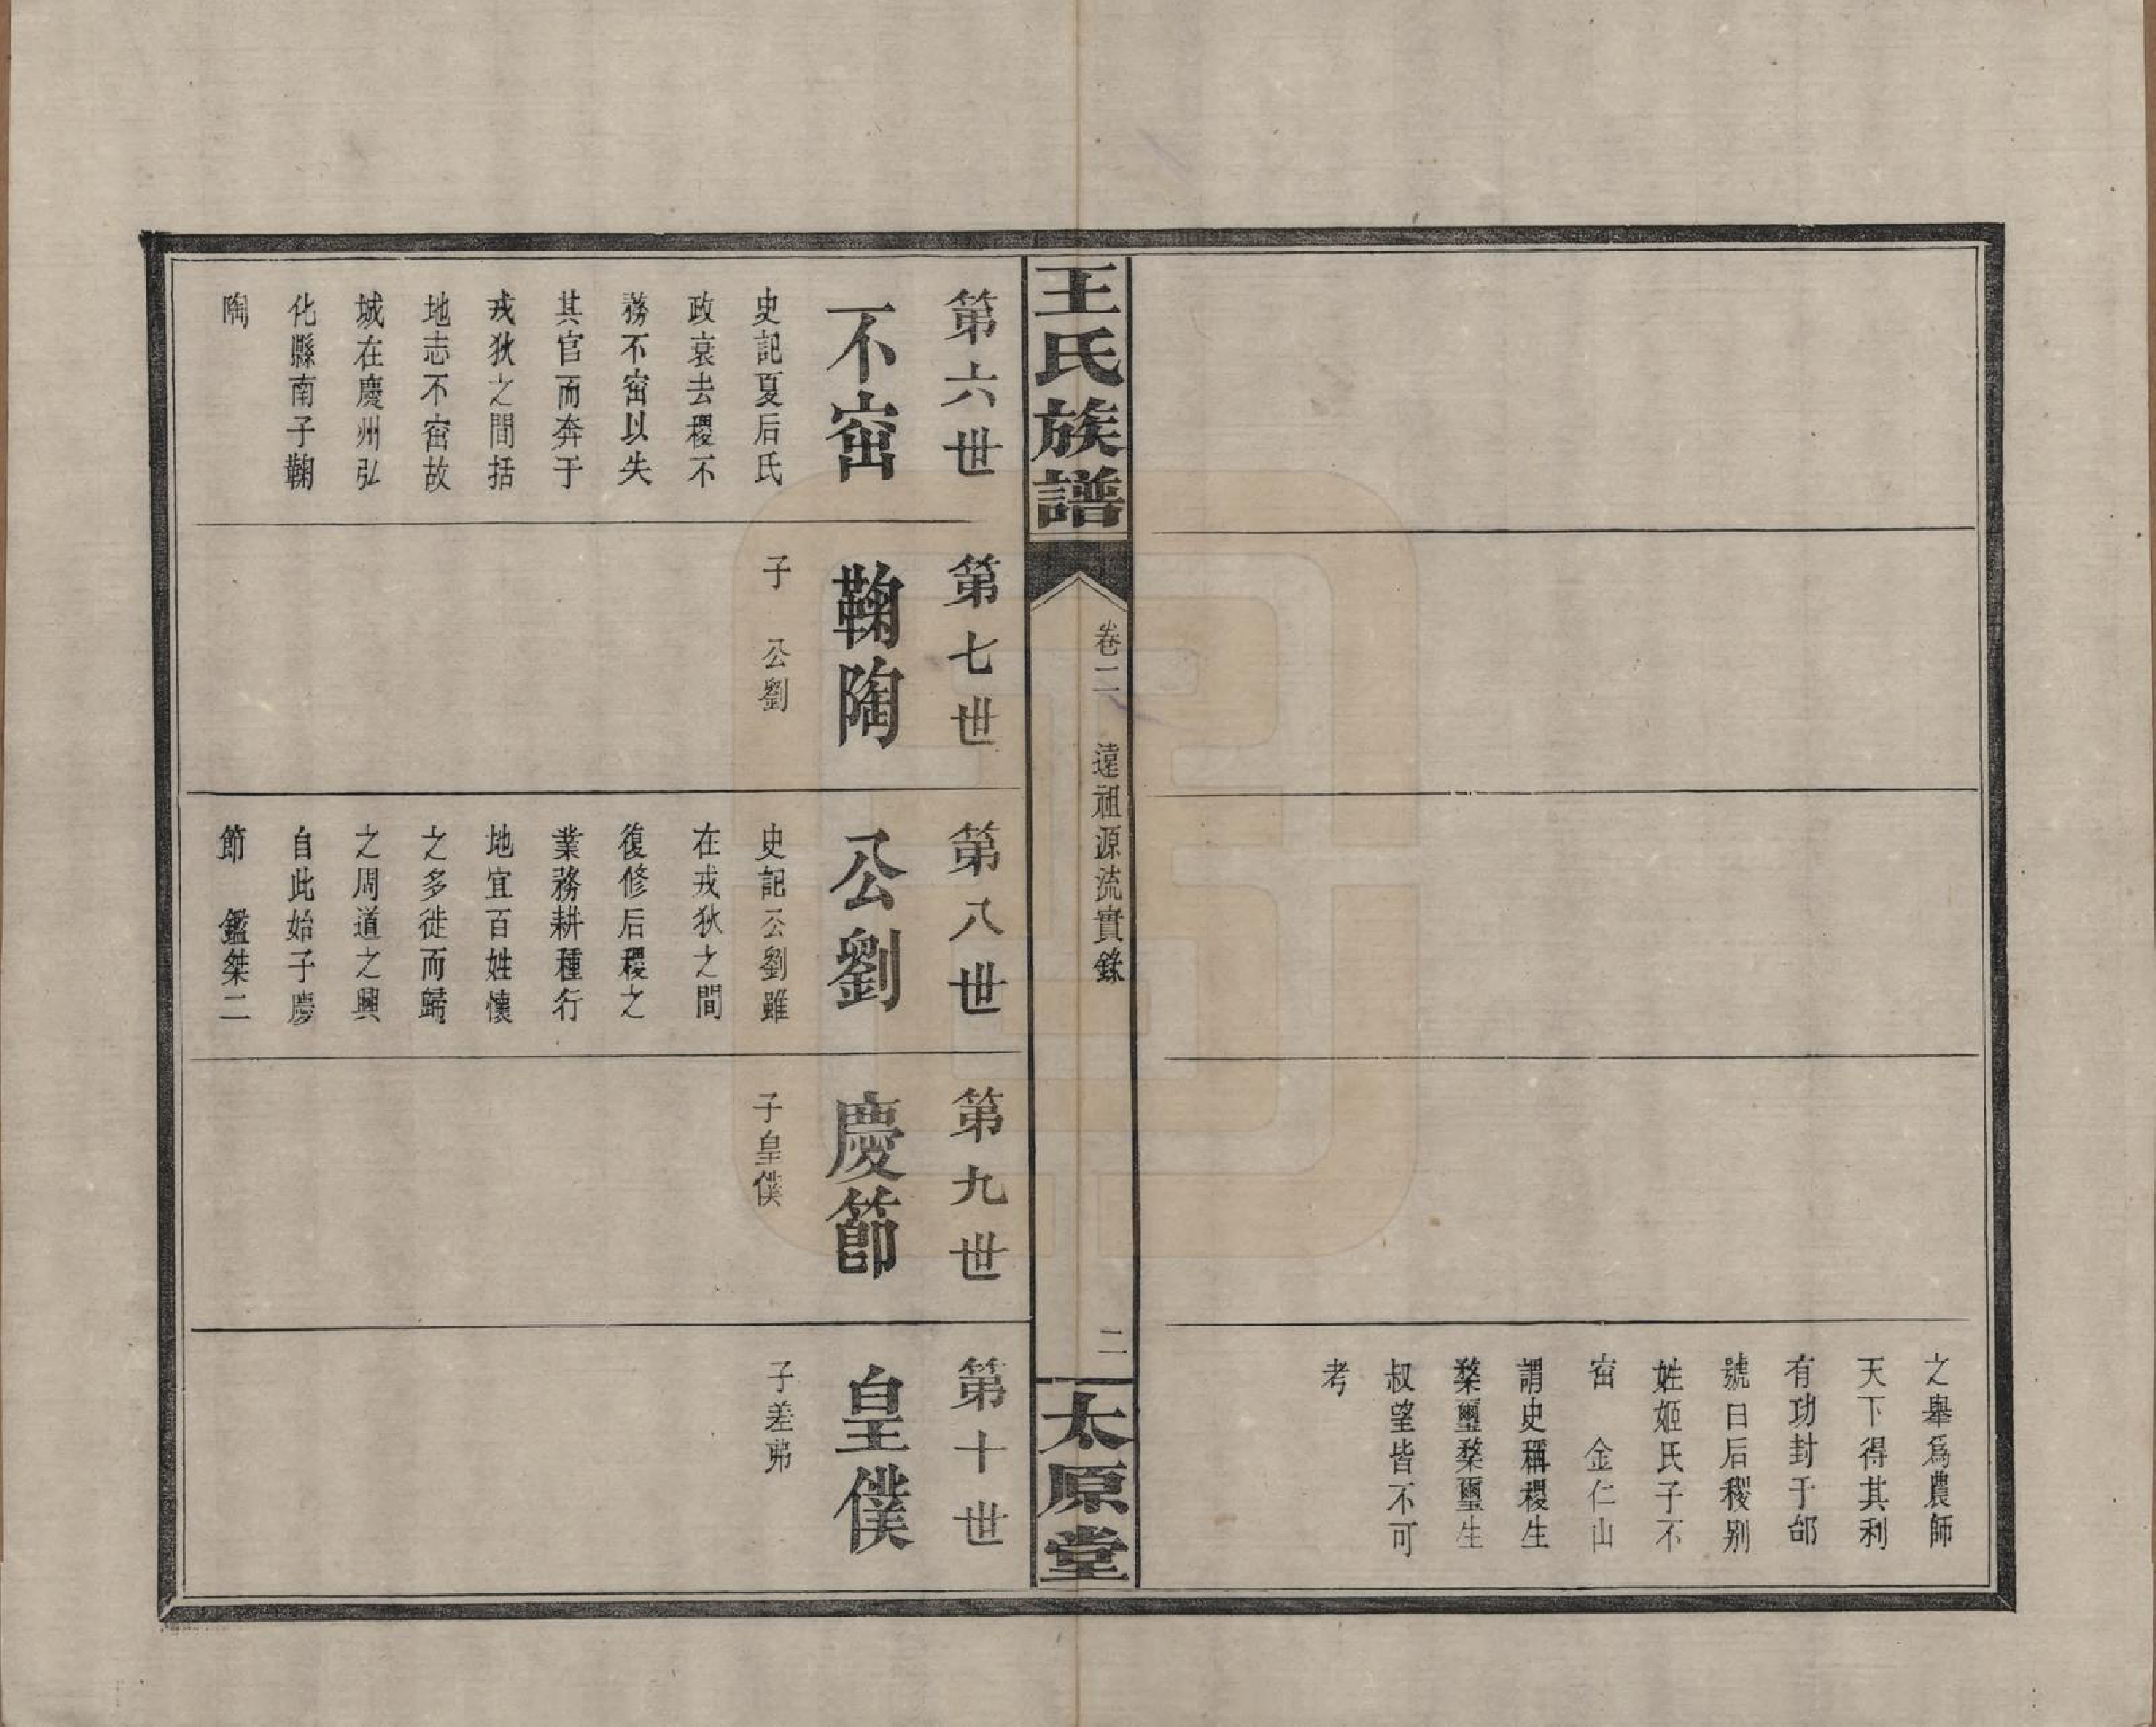 之舉爲農師
天下得其利
有功封于邰
號曰后稷别
姓姬氏子不
窋　金仁山
謂史稱稷生
漦璽漦璽生
叔望皆不可
考
王氏族譜
卷二　遠祖源流實錄
二
太原堂
第六世
不窋
史記夏后氏
政衰去稷不
務不窋以失
其官而奔于
戎狄之間括
地志不窋故
城在慶州弘
化縣南子鞠
陶
第七世
鞠陶
子　公劉
第八世
公劉
史記公劉雖
在戎狄之間
復修后稷之
業務耕種行
地宜百姓懷
之多徙而歸
之周道之興
自此始子慶
節　鑑桀二
第九世
慶節
子皇僕
第十世
皇僕
子差弗